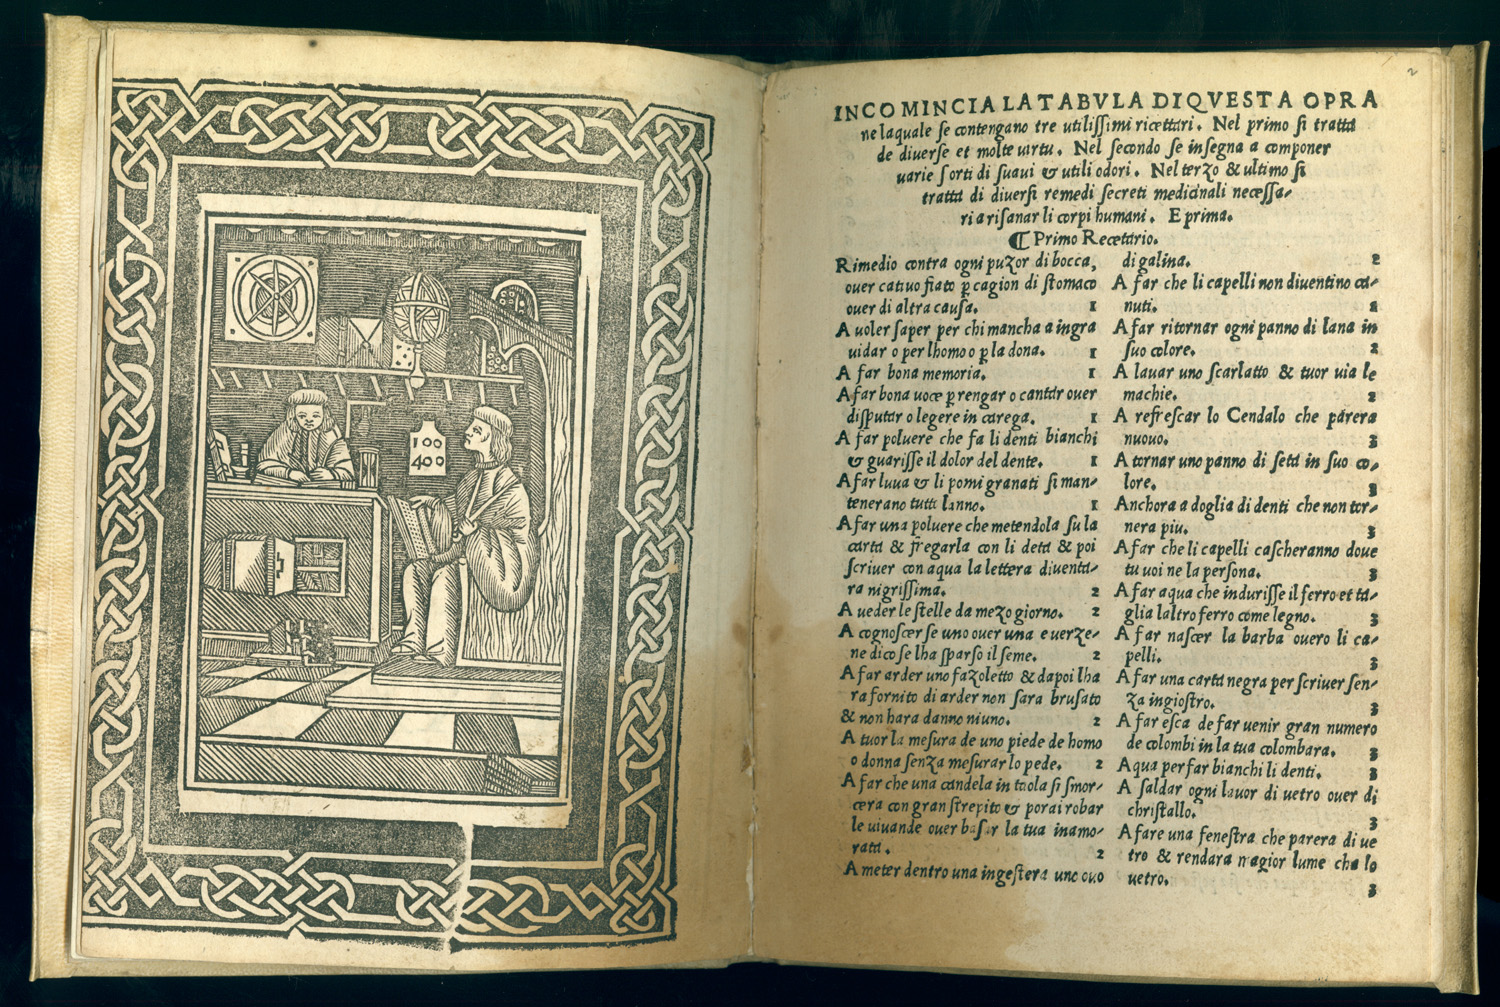 100
400
2
INCOMINCIA LA TABVLA DI QVESTA OPRA
ne laquale se contengano tre utilissimi ricettari. Nel primo si tratta
de diuerse et molte uirtu. Nel secondo se insegna a componer
uarie sorti di suaui & utili odori. Nel terzo & ultimo si
tratta di diuersi remedi secreti medicinali necessa-
ri a risanar li corpi humani. E prima.
¶ Primo Recettario.
Rimedio contra ogni puzor di bocca,
ouer catiuo fiato p cagion di stomaco
ouer di altra causa. 1
A uoler saper per chi mancha a ingra
uidar o per lhomo o p la dona. 1
A far bona memoria. 1
A far bona uoce p rengar o cantar ouer
disputar o legere in carega. 1
A far poluere che fa li denti bianchi
& guarisse il dolor del dente. 1
A far luua & li pomi granati si man-
tenerano tutti lanno. 1
A far una poluere che metendola su la
carta & fregarla con li deta & poi
scriuer con aqua la lettera diuenta-
ra nigrissima. 2
A ueder le stelle da mezo giorno. 2
A cognoscer se uno ouer una e uerze-
ne dico se lha sparso il seme. 2
A far arder uno fazoletto & dapoi lha
ra fornito di arder non sara brusato
& non hara danno niuno. 2
A tuor la mesura de uno piede de homo
o donna senza mesurar lo pede. 2
A far che una candela in taola si smor-
cera con gran strepito & porai robar
le uiuande ouer basar la tua inamo-
rata. 2
A meter dentro una ingestera uno ouo
di galina. 2
A far che li capelli non diuentino ca-
nuti. 2
A far ritornar ogni panno di lana in
suo colore. 2
A lauar uno scarlatto & tuor uia le
machie. 2
A refrescar lo Cendalo che parera
nuouo. 3
A tornar uno panno di seta in suo co-
lore. 3
Anchora a doglia di denti che non tor-
nera piu. 3
A far che li capelli cascheranno doue
tu uoi ne la persona. 3
A far aqua che indurisse il ferro et ta-
glia laltro ferro come legno. 3
A far nascer la barba ouero li ca-
pelli. 3
A far una carta negra per scriuer sen-
za ingiostro. 3
A far esca de far uenir gran numero
de colombi in la tua colombara. 3
Aqua per far bianchi li denti. 3
A saldar ogni lauor di uetro ouer di
christallo. 3
A fare una fenestra che parera di ue
tro & rendara magior lume che lo
uetro. 3